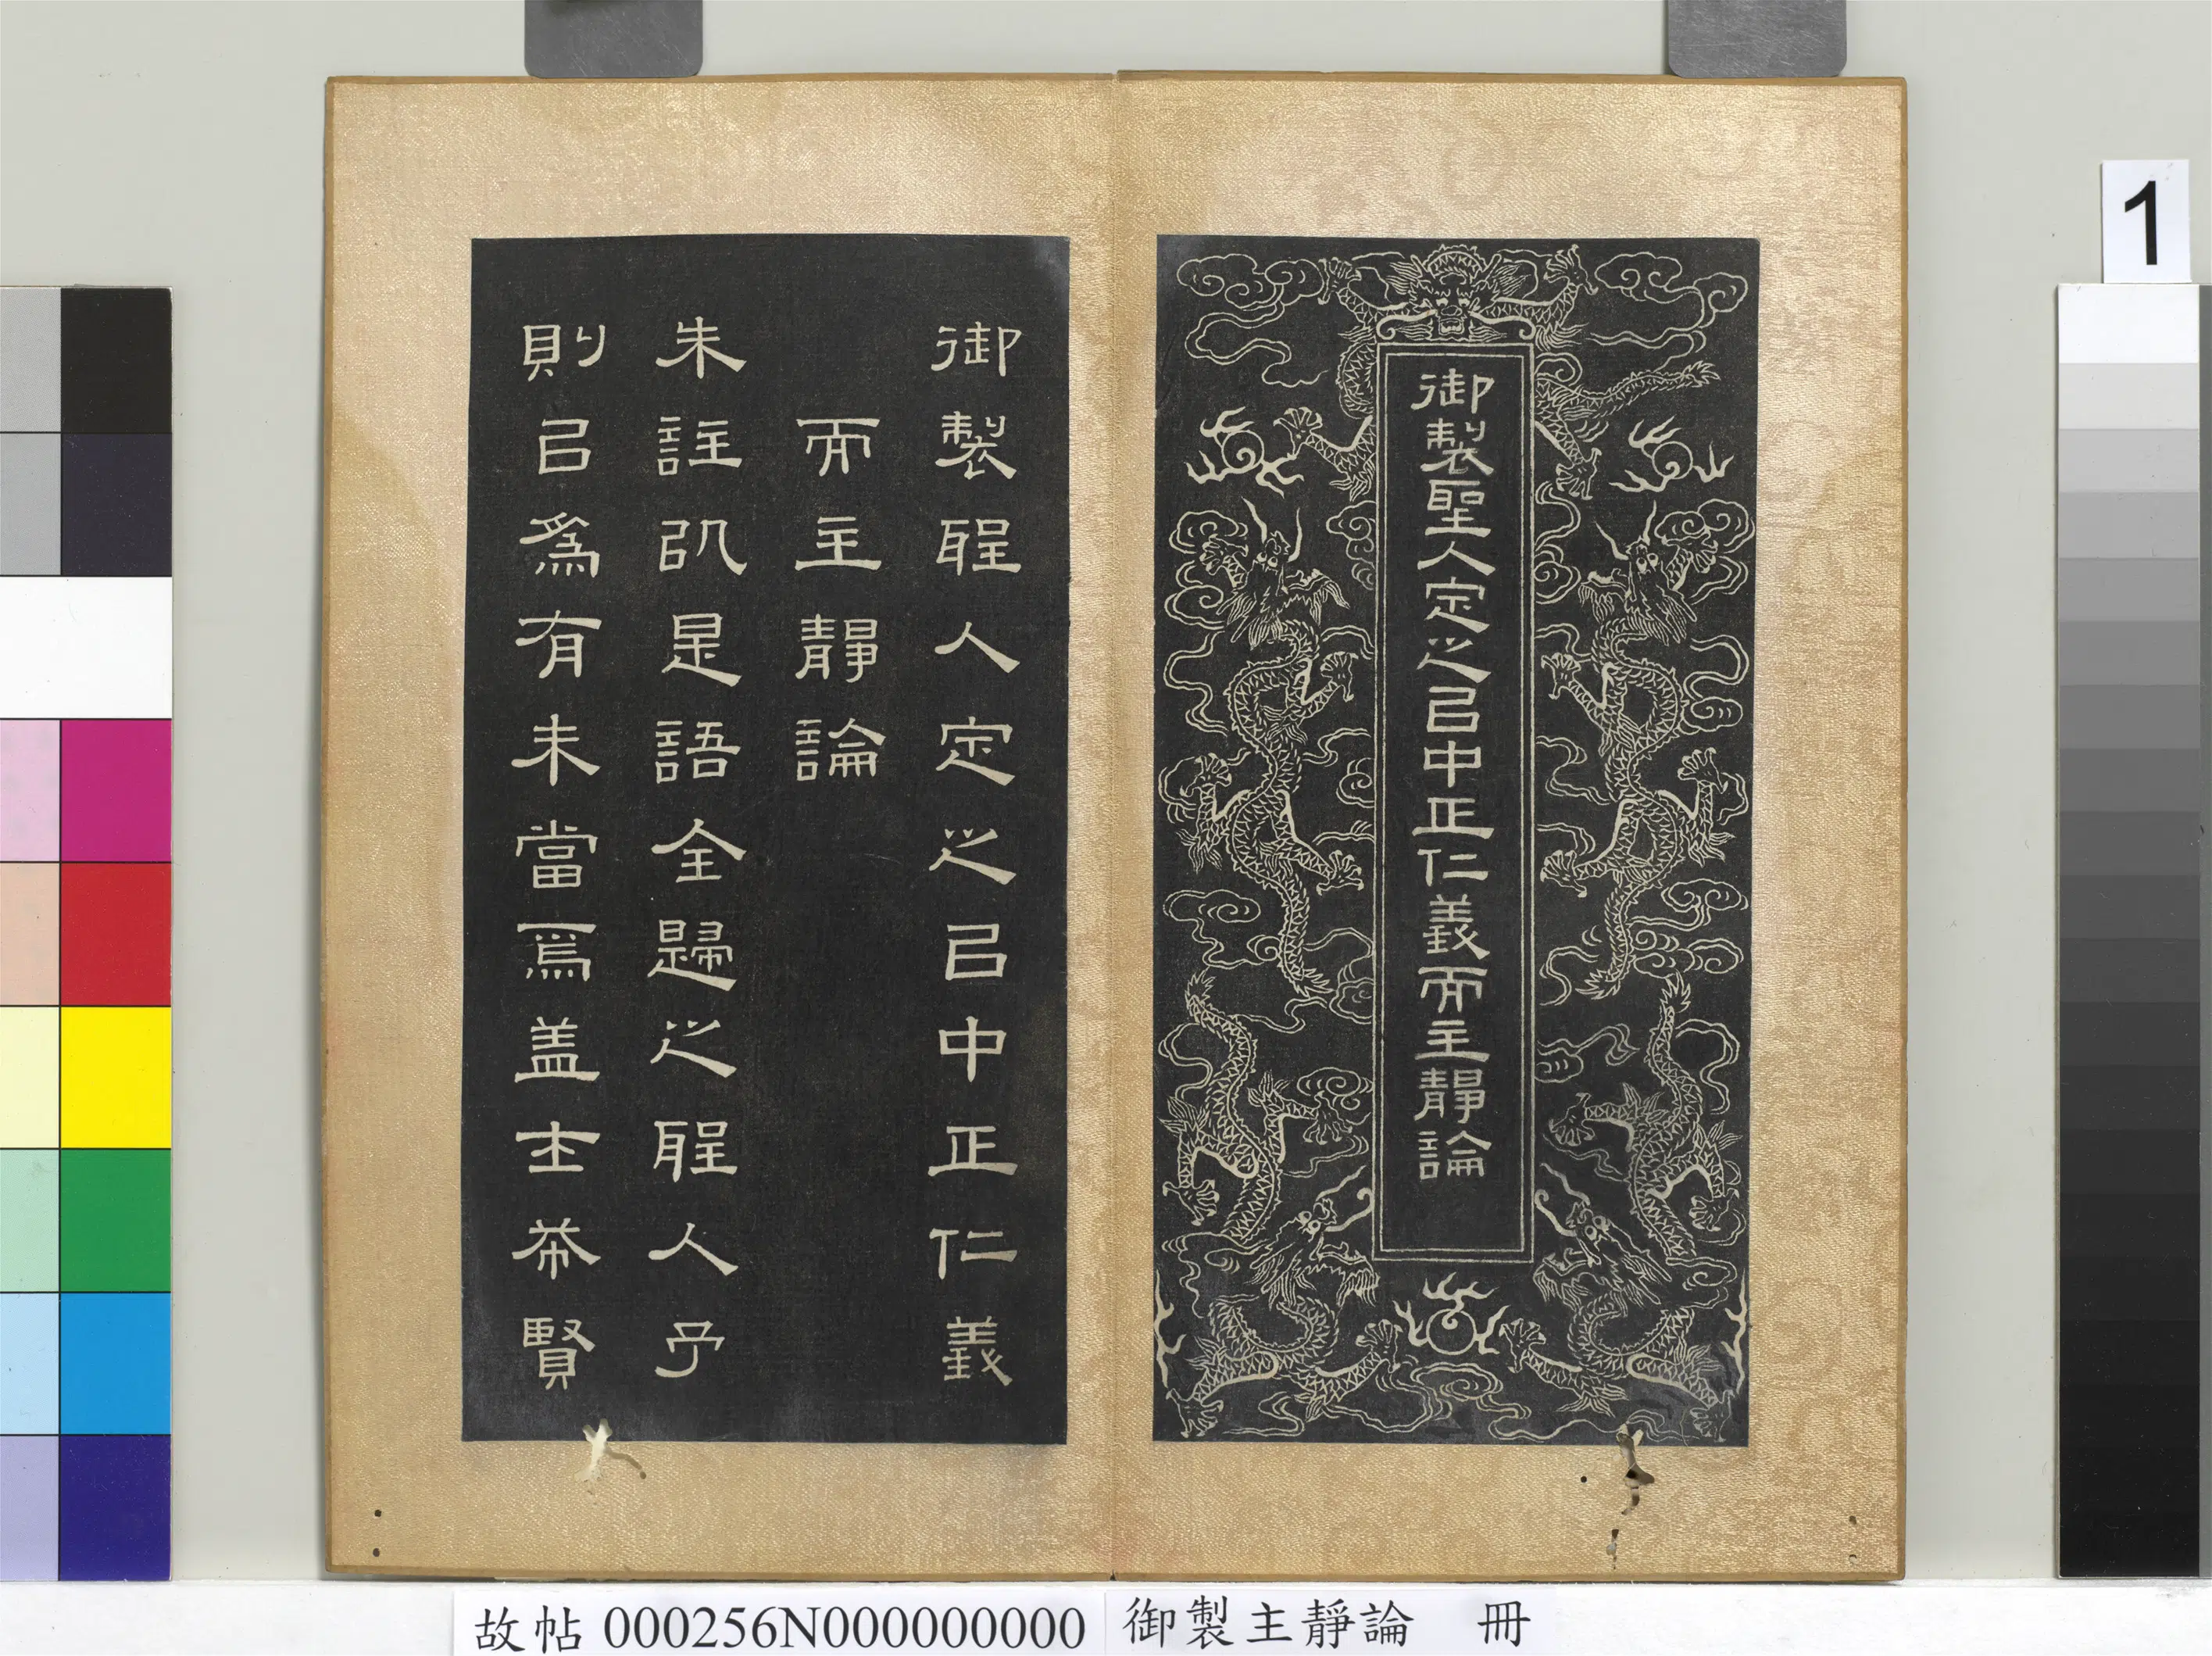 1
御製聖人定之㠯中正仁義而主靜論
御製聖人定之㠯中正仁義
而主靜論
朱註是語全歸之聖人予
則㠯爲有未當焉盖士希賢
故帖 000256N000000000 御製主靜論 冊